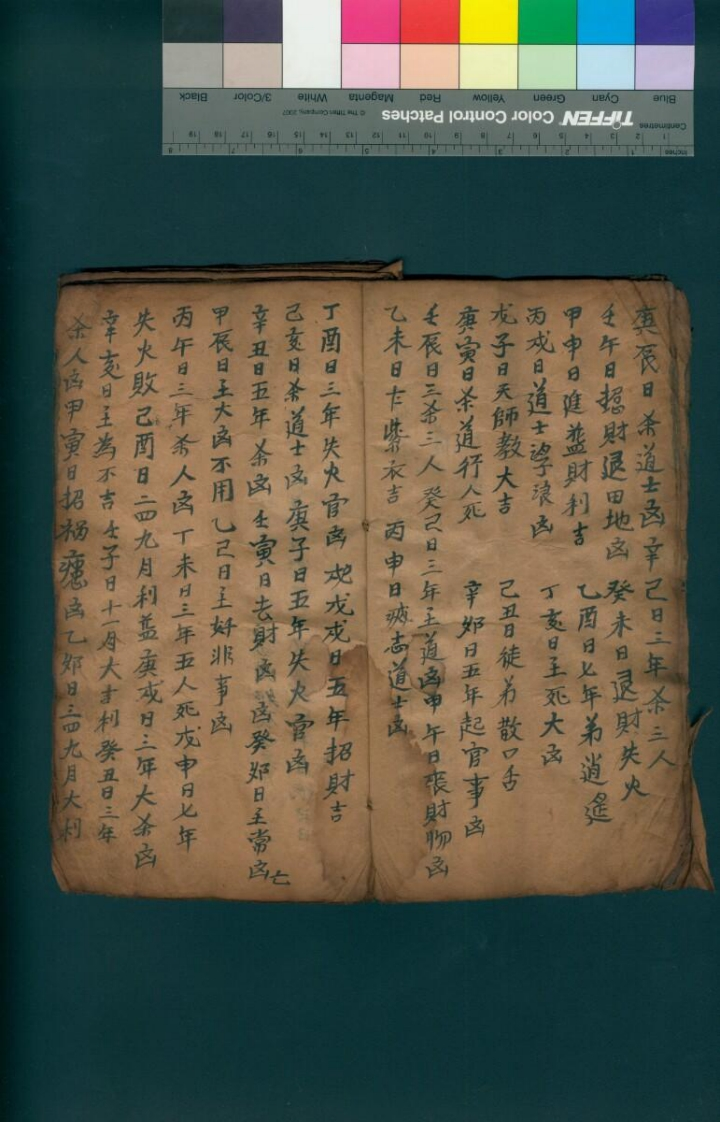 庚辰日杀道士凶辛巳日三年杀三人
壬午日招財退田地凶癸未日退財失火
甲申日進益財利吉乙酉日七年弟逍遥
丙戌日道士浪凶丁亥日主死大凶
戊子日天師教大吉己丑日徒弟散口舌
庚寅日杀道行人死辛卯日五年起官事凶
壬辰日三杀三人癸己日三年主道凶甲午日喪財物凶
乙未日衣吉丙申日滅志道士凶
丁酉日三年失火官凶戌日五年招財吉
己亥日杀道士凶庚子日五年失火官凶
辛丑日五年杀凶壬寅日去財凶凶癸卯日主常凶亡
甲辰日主大凶不用乙己日主奸非事凶
丙午日三年杀人凶丁未日三年五人死戊申日七年
失火敗己酉日二四九月利益庚戌日三年大杀凶
辛亥日主為不吉壬子日十一月大吉利癸丑日三年
杀人凶甲寅日招禍凶乙卯日三四九月大利
Blue
Cyan
Green
Yellow
Red
Magenta
White
3/Color
Black
TIFFEN Color Control Patches
© The Tiffen Company, 2007
Centimetres
1 2 3 4 5 6 7 8 9 10 11 12 13 14 15 16 17 18 19
Inches
1 2 3 4 5 6 7 8